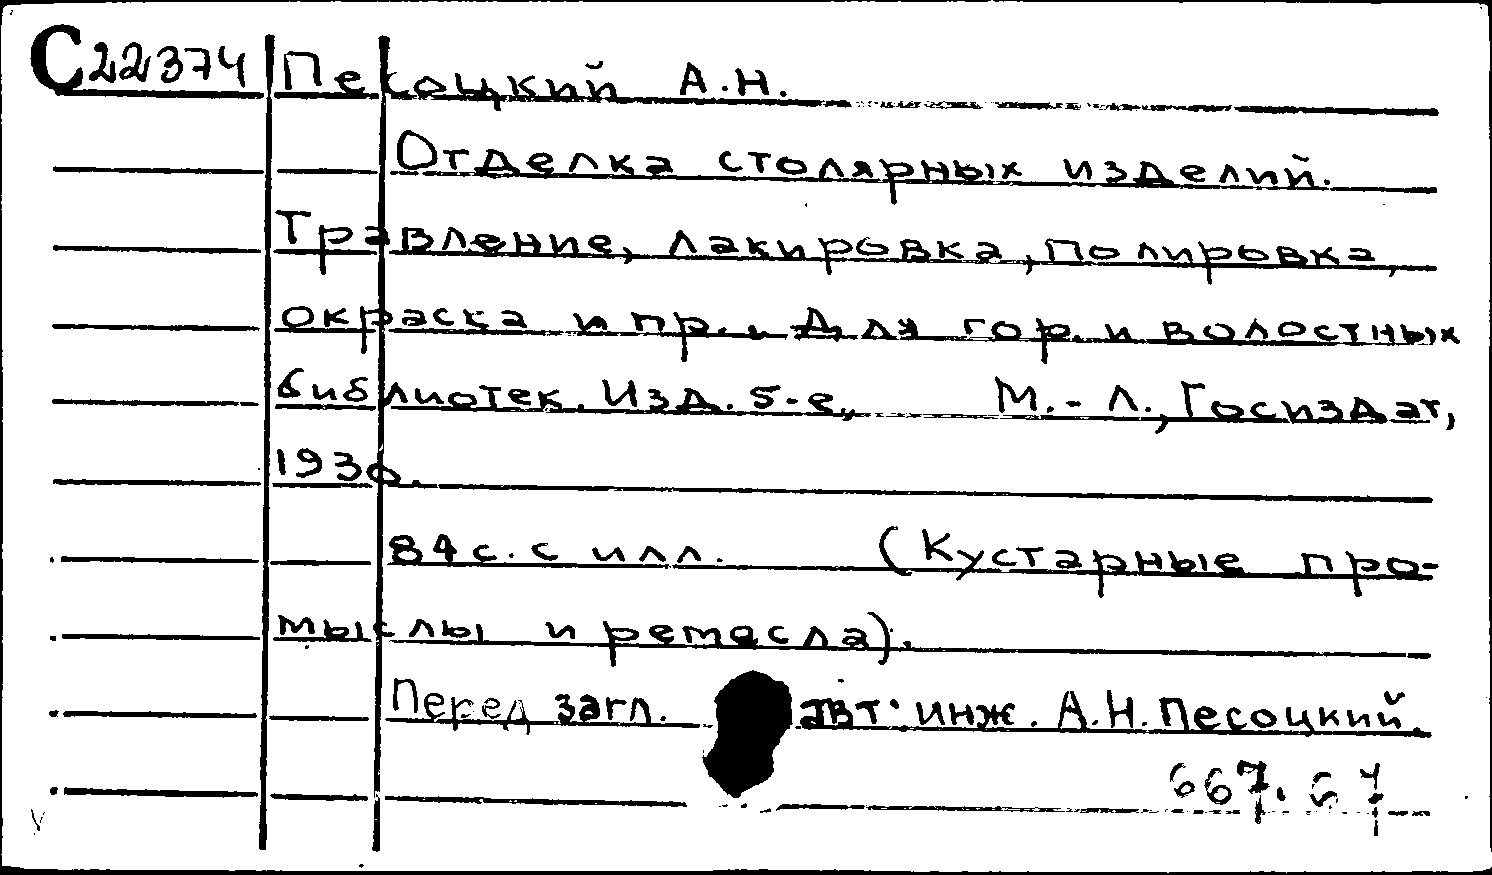 С22374 Песоцкий А.Н.
Отделка столярных изделий.
Травление, лакировка, полировка,
окраска и пр.. Для гор. и волостных
библиотек. Изд. 5-е, М.-Л., Госиздат,
1930.
84 с. с илл. (Кустарные про-
мыслы и ремесла).
Перед загл. авт. инж. А.Н. Песоцкий.
667.67